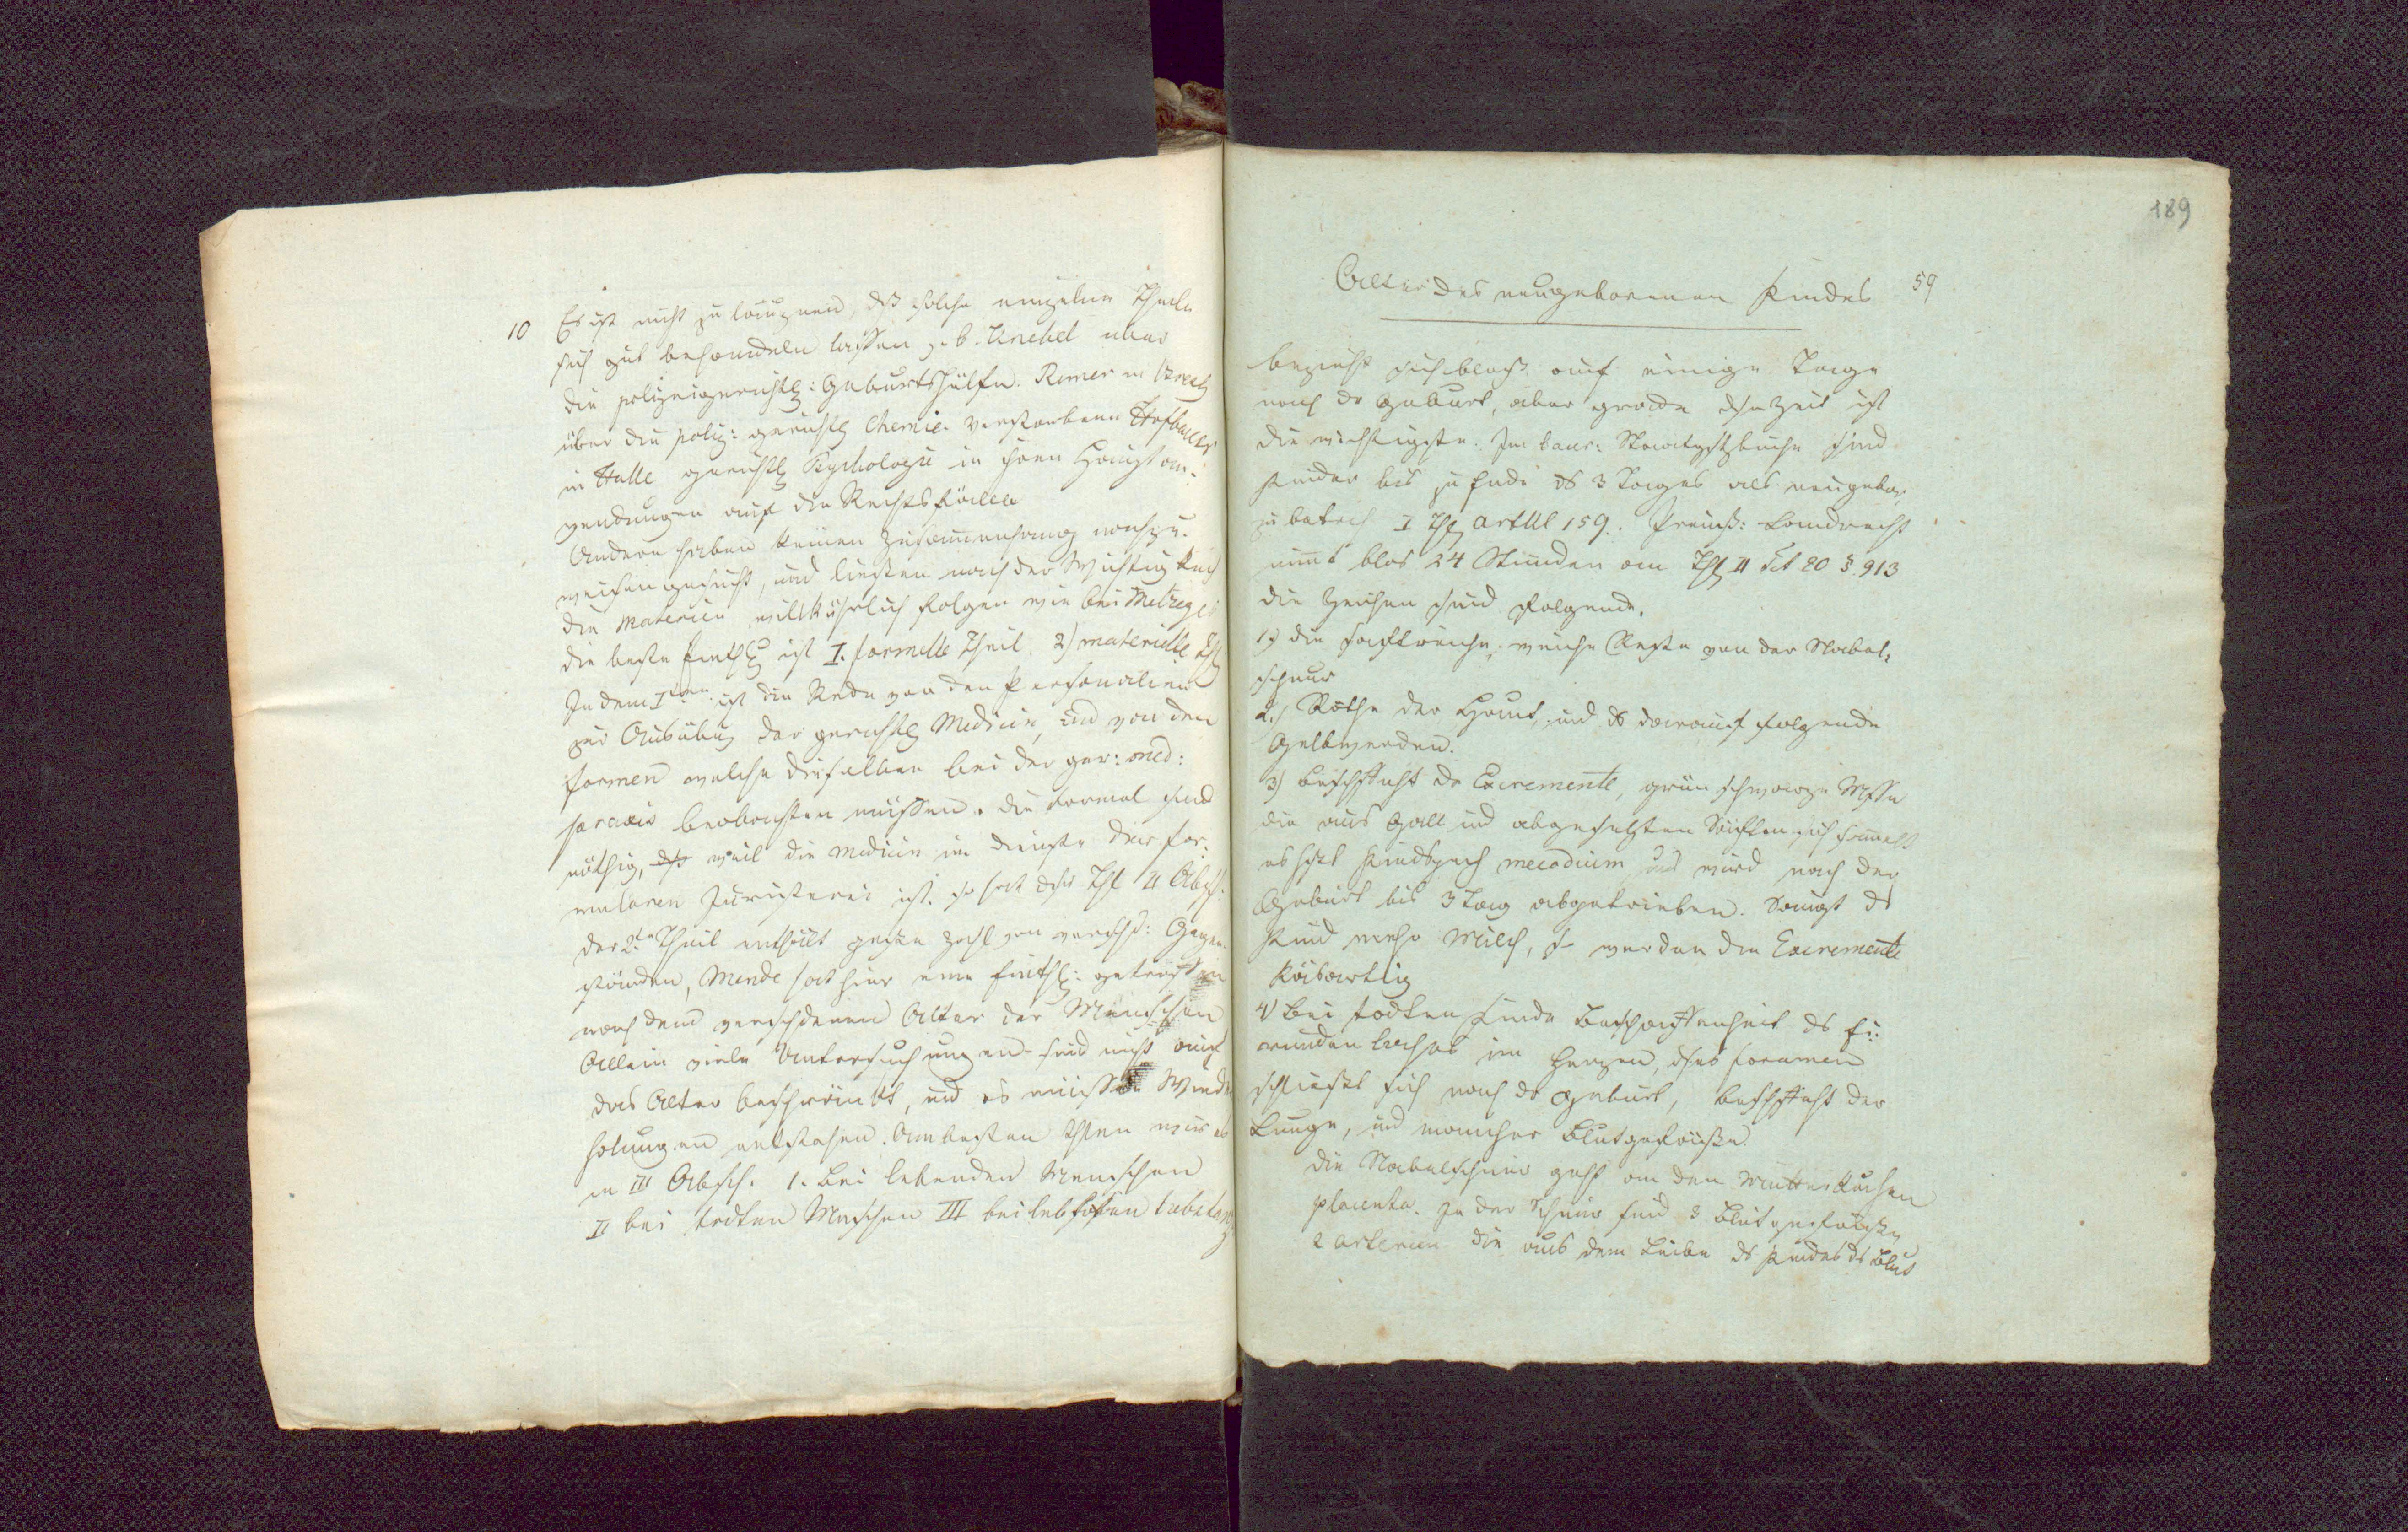 10 Es ist nicht zu läugnen, dß solche einzelne Theile
sich gut behandeln lassen z. b. Knebel über
die polizeigerichtl: Geburtshülfe. Remer in
über die poliz: gerichtl Chemie. verstorbene Hofbauer
in Halle gerichtl Psychologie in ihren Hauptan-
wendungen auf die Rechtsfälle
Andere haben keinen Zusammenhang nachzu-
weisen gesucht, und liessen nach der Wichtigkeit
die Materien willkührlich folgen wie bei Metzger
die beste Einthlg ist I. formelle Theil. 2) materielle Thl
In dem Iten ist die Rede von den Personalien
zur Ausübung der gerichtl Medicin, und von den
Formen welche dieselben bei der ger: med:
praxis beobachten müssen. die Formal sind
nöthig, weil die Medicin im Dienste der for-
mularen Juristerei ist. so hat dsr Thl II Absch.
der 2te Theil enthält große Zahl von verschd: Gegen-
ständen, Mende hat hier eine Einthlg: getroffen
nach dem verschdenen Alter der Menschen
Allein viele Untersuchungen sind nicht auf
das Alter beschränkt, und es müssen Wieder
holungen entstehen. Am besten thlen wir es
in III Absch. 1. bei lebenden Menschen
II bei todten Menschen III bei leblosen
189
Alter des neugeborenen Kindes 59
bezieht sich blos auf einige Tage
nach dr Geburt, aber grade dse Zeit ist
die wichtigste. Im baier: Strafgstzbuche sind
Kinder bis zu Ende ds 3 Tages als neugebor
zu betrach I Thl artikl 159. Preuß: Landrecht
nimt blos 24 Stunden an Thl II Tit 20 § 913
die Zeichen sind folgende.
1.) die saftreiche, weiche Reste von der Nabel-
schnur
2.) Röthe der Haut, und ds darauf folgende
Gelbwerden.
3) Beschffht dr Excremente, grün schwarze Msse
die aus Gall und abgesetzten Säften sich samelt
es hßt Kindspech meconium und wird nach der
Geburt bis 3 Tag abgetrieben. Saugt ds
Kind mehr Milch, so werden die Excremente
käsartig
4) Bei todten Kinde Beschaffenheit ds Ei-
runden Loches im Herzen, dses foramen
schließt sich nach dr Geburt, Beschffht der
Lunge, und mancher Blutgefäße.
die Nabelschnur geht an den Mutterkuchen
placenta. In der Schnur sind 3 Blutgefäße,
2 arterien die aus dem Leibe ds Kindes ds Blut